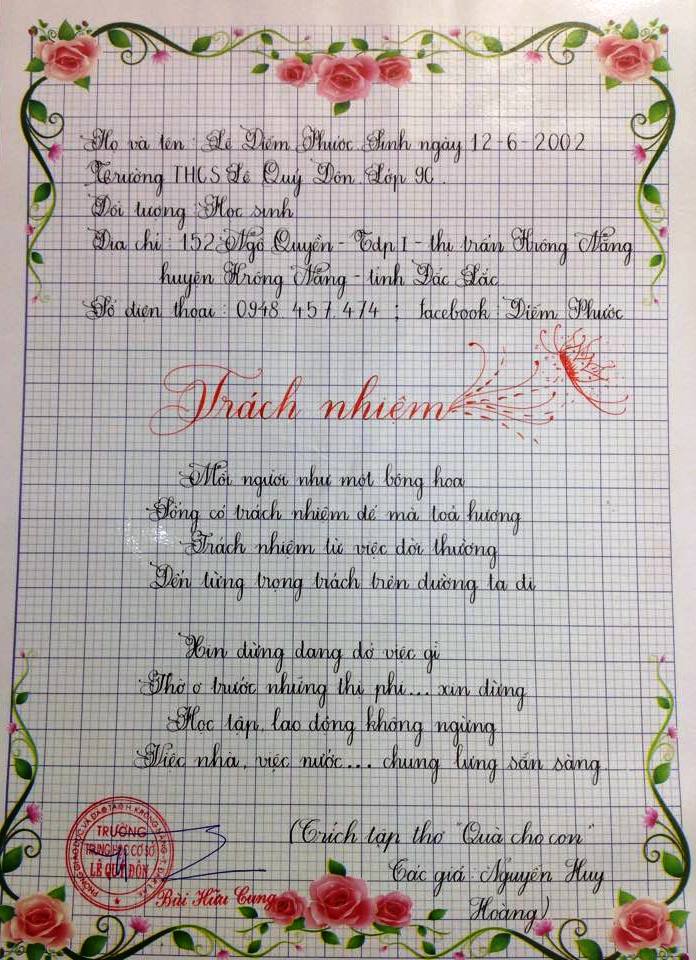 Họ và tên : Lê Diễm Phước. Sinh ngày 12-6-2002
Trường THCS Lê Quý Đôn. Lớp 9C.
Đối tượng : Học sinh
Địa chỉ : 152 Ngô Quyền - Tdp 1 - thị trấn Krông Năng
huyện Krông Năng - tỉnh Đắc Lắc
Số điện thoại : 0948.457.474 ; facebook : Diễm Phước
Trách nhiệm
Mỗi người như một bông hoa
Sống có trách nhiệm để mà toả hương
Trách nhiệm từ việc đời thường
Đến từng trọng trách trên đường ta đi
Xin đừng dang dở việc gì
Thờ ơ trước những thị phi... xin đừng
Học tập, lao động không ngừng
Việc nhà, việc nước... chung lưng sẵn sàng.
(Trích tập thơ "Quà cho con"
Tác giả : Nguyễn Huy
Hoàng)
TRƯỜNG
TRUNG HỌC CƠ SỞ
LÊ QUÝ ĐÔN
Bùi Hữu Cung